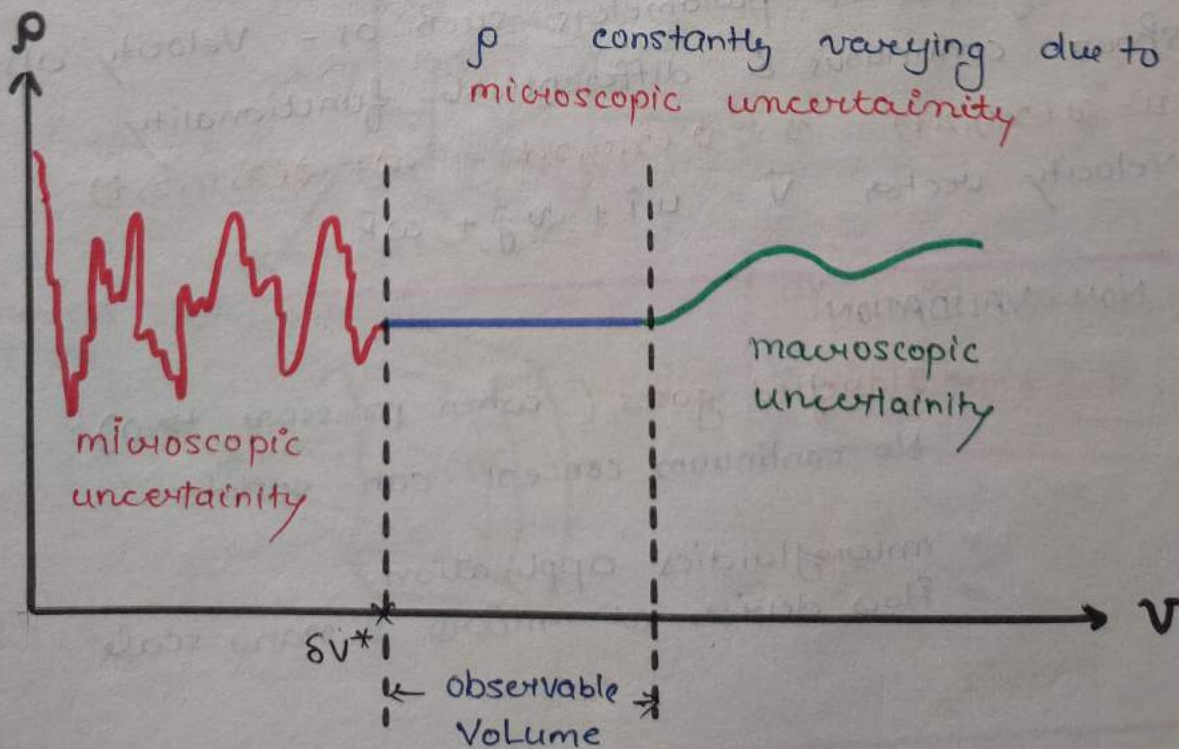 ρ
ρ constantly varying due to
microscopic uncertainity
microscopic
uncertainity
macroscopic
uncertainity
δV*
V
observable
Volume